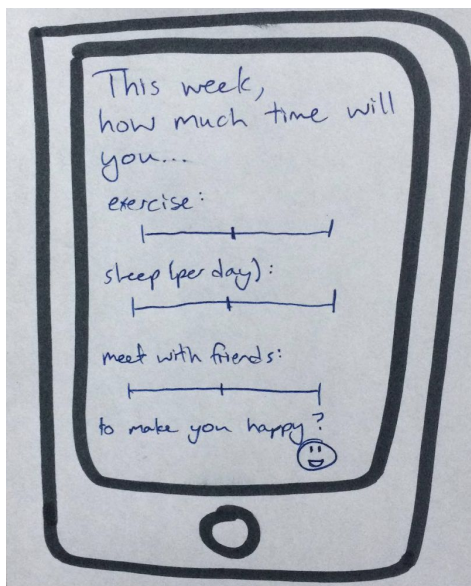 This week,
how much time will
you...
exercise:
sleep (per day):
meet with friends:
to make you happy?